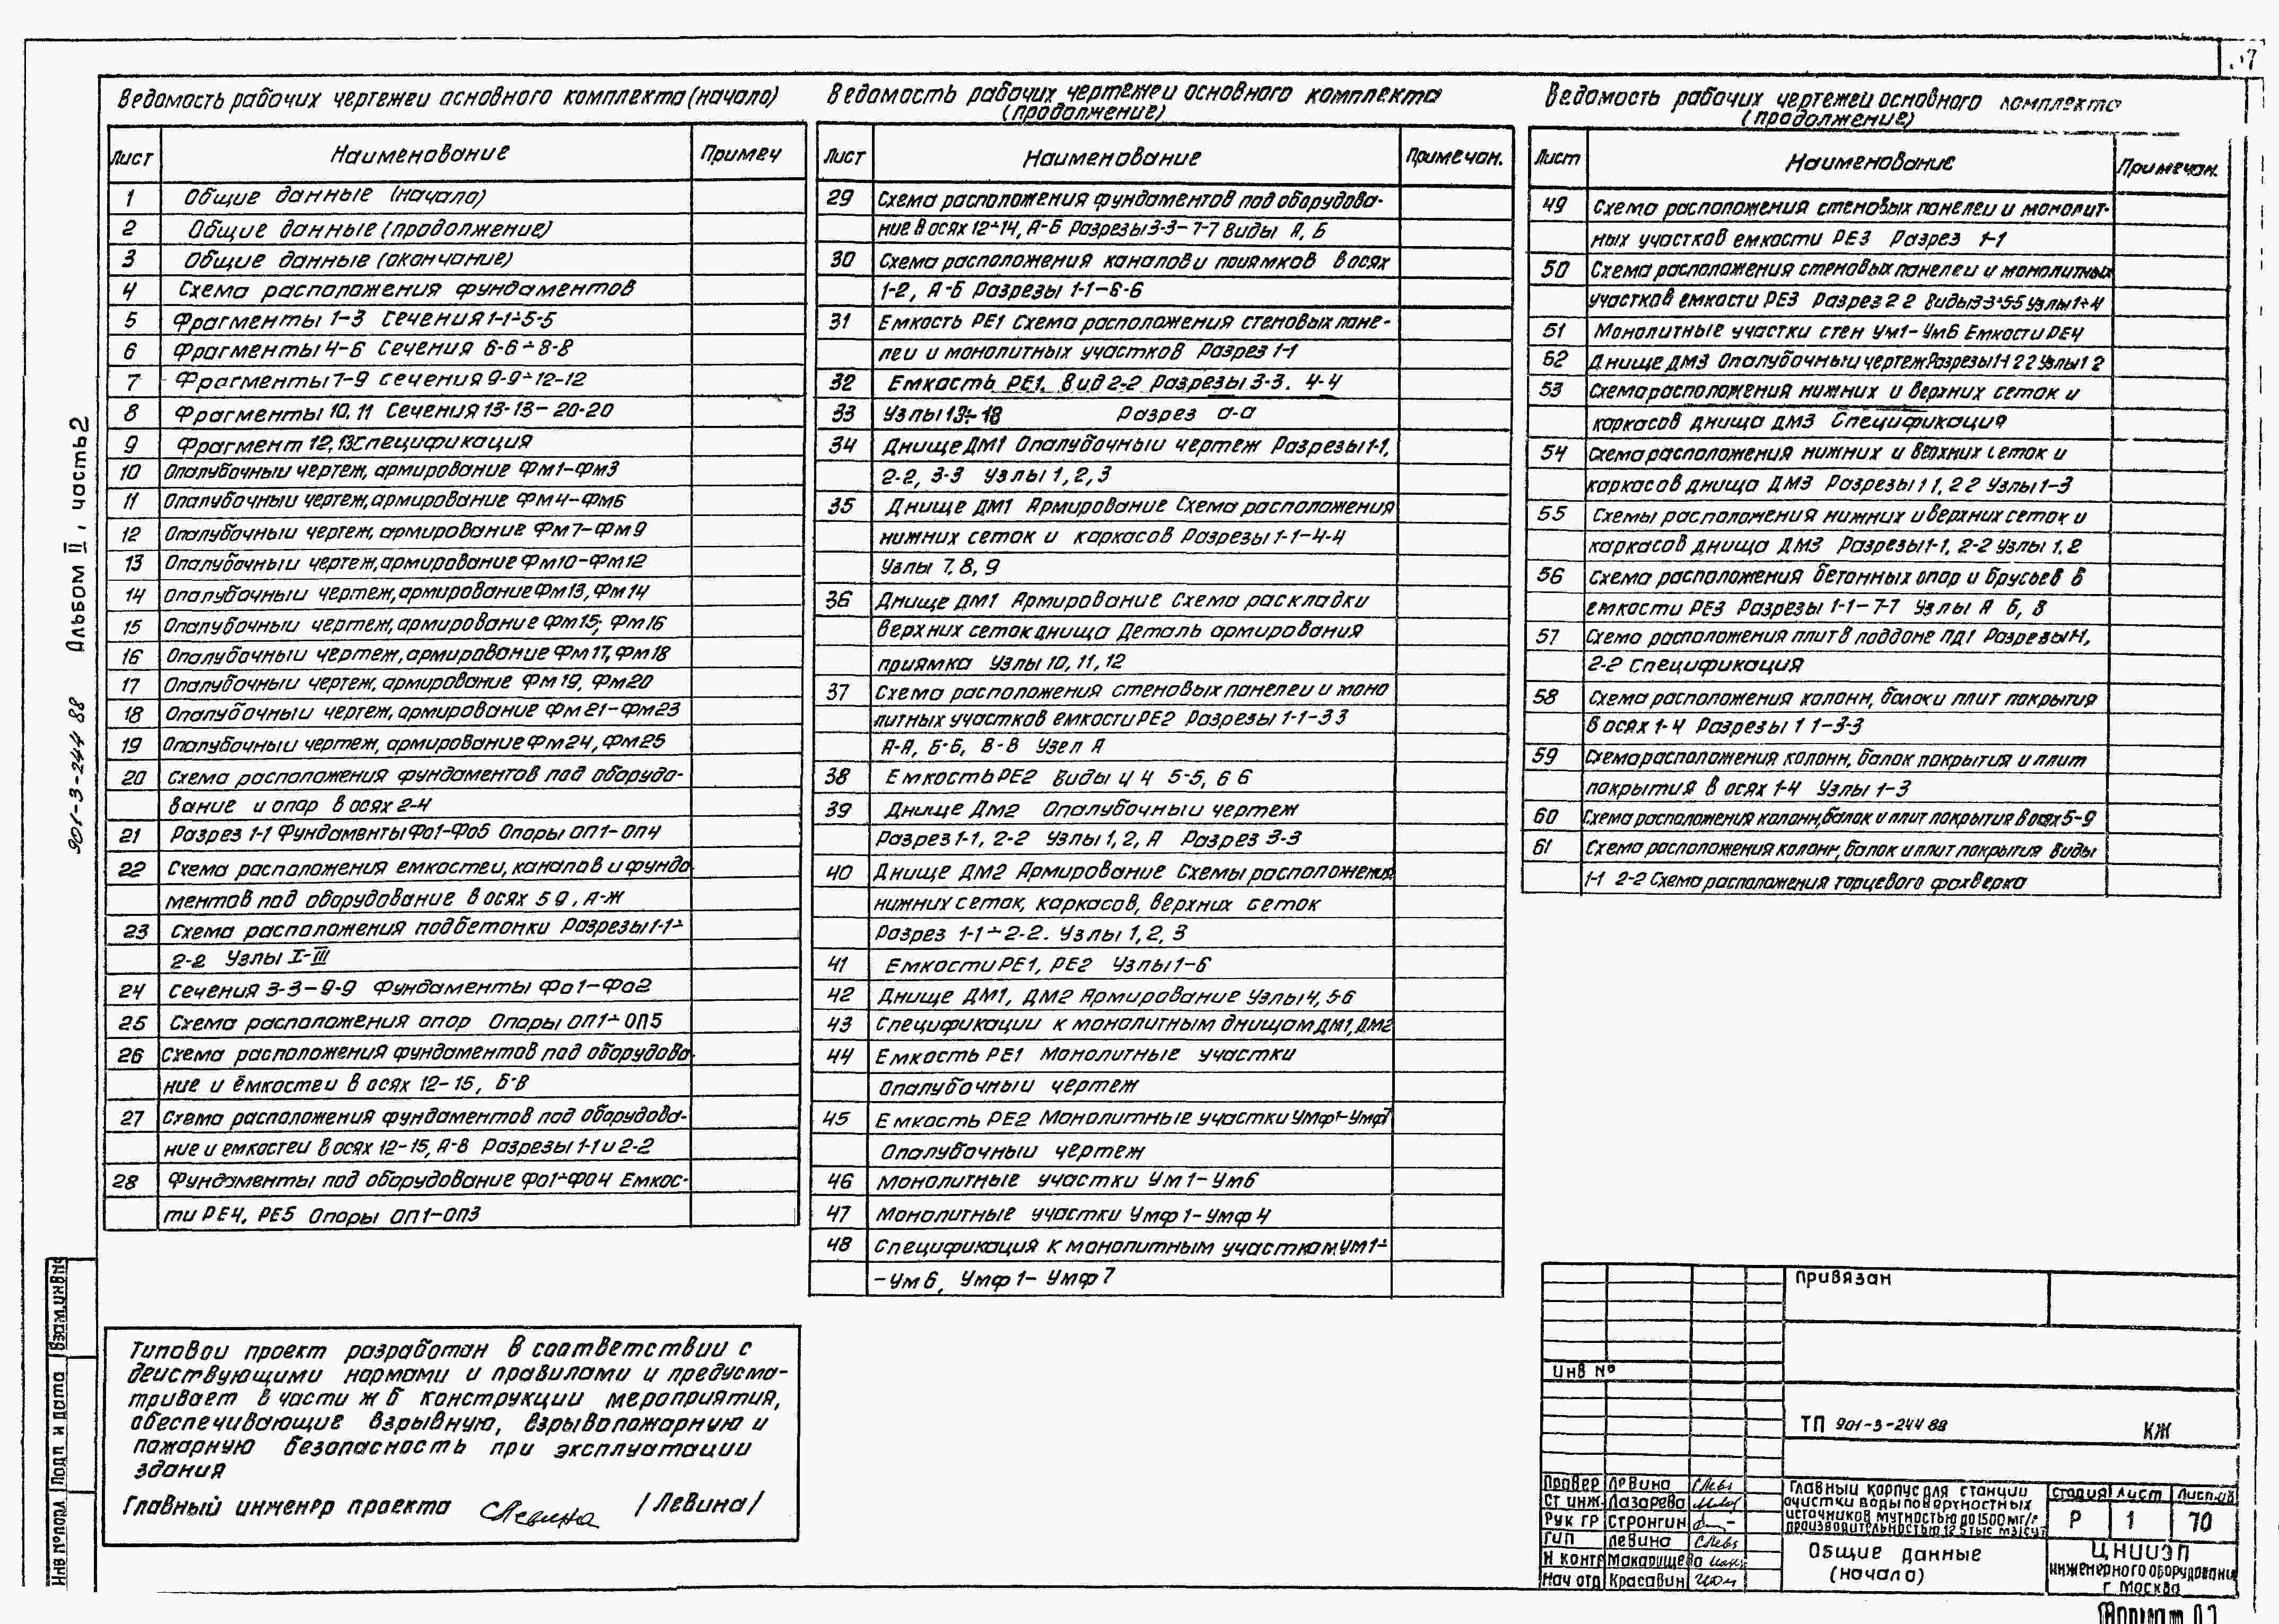 Ведомость рабочих чертежеи основного комплекта (начало)
Лист Наименование Примеч
1 Общие данные (начало)
2 Общие данные (продолжение)
3 Общие данные (окончание)
4 Схема расположения фундаментов
5 Фрагменты 1-3 Сечения 1-1÷5-5
6 Фрагменты 4-6 Сечения 6-6÷8-8
7 Фрагменты 7-9 Сечения 9-9÷12-12
8 Фрагменты 10, 11 Сечения 13-13-20-20
9 Фрагмент 12,13 Спецификация
10 Опалубочныи чертеж, армирование Фм1-Фм3
11 Опалубочныи чертеж, армирование Фм4-Фм6
12 Опалубочныи чертеж, армирование Фм7-Фм9
13 Опалубочныи чертеж, армирование Фм10-Фм12
14 Опалубочныи чертеж, армирование Фм13, Фм14
15 Опалубочныи чертеж, армирование Фм15, Фм16
16 Опалубочныи чертеж, армирование Фм17, Фм18
17 Опалубочныи чертеж, армирование Фм19, Фм20
18 Опалубочныи чертеж, армирование Фм21-Фм23
19 Опалубочныи чертеж, армирование Фм24, Фм25
20 Схема расположения фундаментов под оборудо-
вание и опор в осях 2-4
21 Разрез 1-1 Фундаменты Фо1-Фо5 Опоры ОП1-ОП4
22 Схема расположения емкостеи, каналов и фунда
ментов под оборудование в осях 5 9, А-Ж
23 Схема расположения подбетонки Разрезы 1-1÷
2-2 Узлы I-III
24 Сечения 3-3-9-9 Фундаменты Фо1-Фо2
25 Схема расположения опор Опоры ОП1÷ОП5
26 Схема расположения фундаментов под оборудова-
ние и ёмкостеи в осях 12-15, Б-В
27 Схема расположения фундаментов под оборудова-
ние и емкостеи в осях 12-15, А-В Разрезы 1-1 и 2-2
28 Фундаменты под оборудование Фо1÷Фо4 Емкос-
ти РЕ4, РЕ5 Опоры ОП1-ОП3
Ведомость рабочих чертежеи основного комплекта
(продолжение)
Лист Наименование Примечан.
29 Схема расположения фундаментов под оборудова-
ние в осях 12÷14, А-Б Разрезы 3-3-7-7 Виды А, Б
30 Схема расположения каналов и приямков в осях
1-2, А-Б Разрезы 1-1-6-6
31 Емкость РЕ1 Схема расположения стеновых пане-
леи и монолитных участков Разрез 1-1
32 Емкость РЕ1. Вид 2-2 Разрезы 3-3. 4-4
33 Узлы 13÷18 Разрез а-а
34 Днище ДМ1 Опалубочныи чертеж Разрезы 1-1,
2-2, 3-3 Узлы 1, 2, 3
35 Днище ДМ1 Армирование Схема расположения
нижних сеток и каркасов Разрезы 1-1-4-4
Узлы 7, 8, 9
36 Днище ДМ1 Армирование Схема раскладки
верхних сеток днища Деталь армирования
приямка Узлы 10, 11, 12
37 Схема расположения стеновых панелеи и моно
литных участков емкости РЕ2 Разрезы 1-1-3 3
А-А, Б-Б, В-В Узел А
38 Емкость РЕ2 Виды 4 4 5-5, 6 6
39 Днище ДМ2 Опалубочныи чертеж
Разрез 1-1, 2-2 Узлы 1, 2, А Разрез 3-3
40 Днище ДМ2 Армирование Схемы расположения
нижних сеток, каркасов, верхних сеток
Разрез 1-1÷2-2. Узлы 1, 2, 3
41 Емкости РЕ1, РЕ2 Узлы 1-6
42 Днище ДМ1, ДМ2 Армирование Узлы 4, 5-6
43 Спецификации к монолитным днищам ДМ1, ДМ2
44 Емкость РЕ1 Монолитные участки
Опалубочныи чертеж
45 Емкость РЕ2 Монолитные участки Умф1-Умф7
Опалубочныи чертеж
46 Монолитные участки Ум1-Ум6
47 Монолитные участки Умф1-Умф4
48 Спецификация к монолитным участкам Ум1÷
-Ум6, Умф1-Умф7
Ведомость рабочих чертежеи основного комплекта
(продолжение)
Лист Наименование Примечан.
49 Схема расположения стеновых панелеи и монолит-
ных участков емкости РЕ3 Разрез 1-1
50 Схема расположения стеновых панелеи и монолитных
участков емкости РЕ3 Разрез 2 2 Виды 3-3÷5-5 Узлы 1÷4
51 Монолитные участки стен Ум1-Ум6 Емкости РЕ4
52 Днище ДМ3 Опалубочныи чертеж Разрезы 1-1 2 2 Узлы 1 2
53 Схема расположения нижних и верхних сеток и
каркасов днища ДМ3 Спецификация
54 Схема расположения нижних и верхних сеток и
каркасов днища ДМ3 Разрезы 1 1, 2 2 Узлы 1-3
55 Схемы расположения нижних и верхних сеток и
каркасов днища ДМ3 Разрезы 1-1, 2-2 Узлы 1, 2
56 Схема расположения бетонных опор и брусьев в
емкости РЕ3 Разрезы 1-1-7-7 Узлы А Б, В
57 Схема расположения плит в поддоне ПД1 Разрезы 1-1,
2-2 Спецификация
58 Схема расположения колонн, балок и плит покрытия
в осях 1-4 Разрезы 1 1-3-3
59 Схема расположения колонн, балок покрытия и плит
покрытия в осях 1-4 Узлы 1-3
60 Схема расположения колонн, балок и плит покрытия в осях 5-9
61 Схема расположения колонн, балок и плит покрытия Виды
1-1 2-2 Схема расположения торцевого фахверка
Альбом II, часть 2
901-3-244 88
Взам.инв№
Подп и дата
Инв № подл
Типовои проект разработан в соответствии с
деиствующими нормами и правилами и предусма-
тривает в части ж б конструкции мероприятия,
обеспечивающие взрывную, взрывопожарную и
пожарную безопасность при эксплуатации
здания
Главный инженер проекта /Левина/
Привязан
Инв №
ТП 901-3-244 88 КЖ
Провер Левина
Ст инж. Лазарева
Рук гр Стронгин
ГИП Левина
Н контр Макарищева
Нач отд Красавин
Главный корпус для станции
очистки воды поверхностных
источников мутностью до 1500 мг/л
производительностью 12 5 тыс м3/сут
Стадия Лист Листов
Р 1 70
Общие данные
(начало)
ЦНИИЭП
инженерного оборудования
г Москва